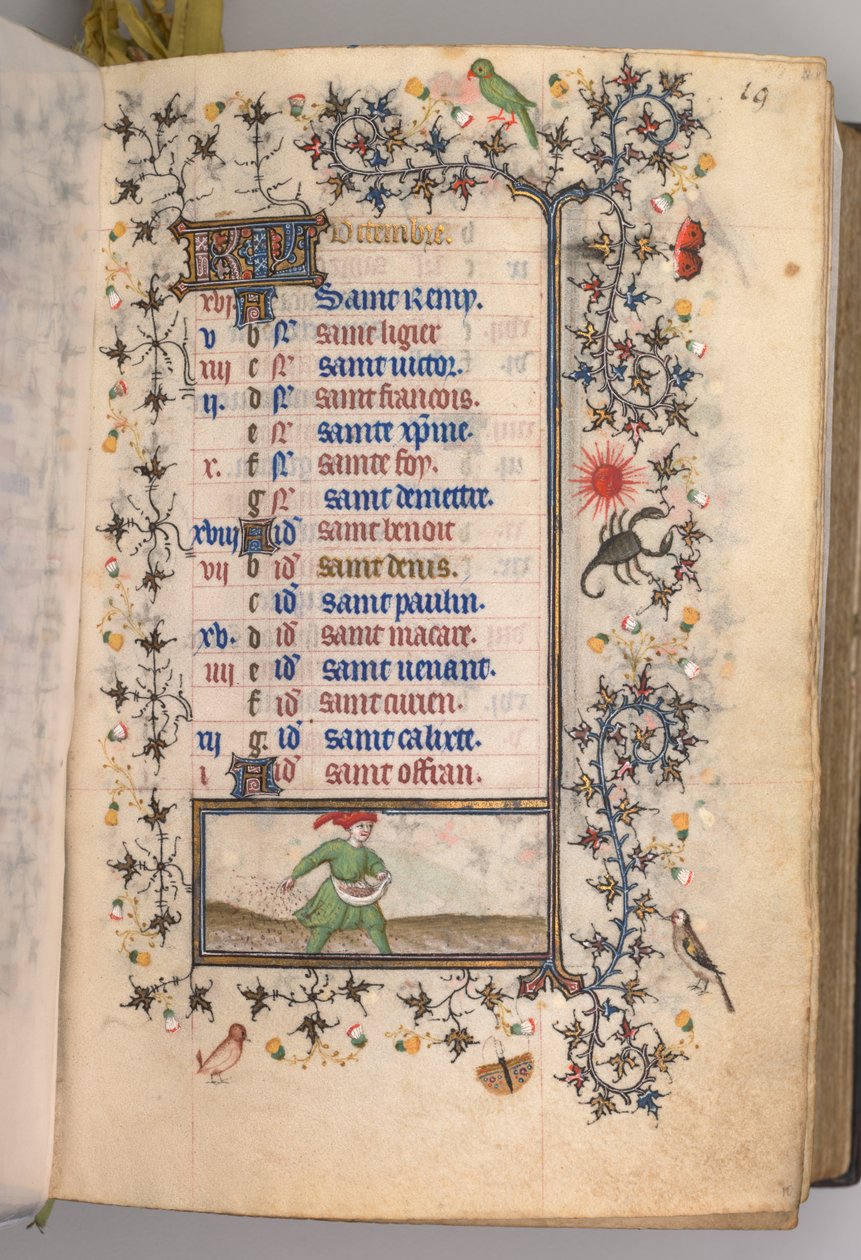 19
KL Octembre.
xvi. A Saint Remy.
v b N͂ saint ligier
iiii c N͂ saint victor.
ii. d N͂ saint francois.
e N͂ sainte xp̃ine.
x. f N͂ sainte foy.
g N͂ saint demettre.
xviii A id̾ saint benoit
vii b id̾ saint denis.
c id̾ saint paulin.
xv. d id̾ saint macare.
iiii e id̾ saint venant.
f id̾ saint curien.
xii g. id̾ saint calixte.
i A id̾ saint offran.